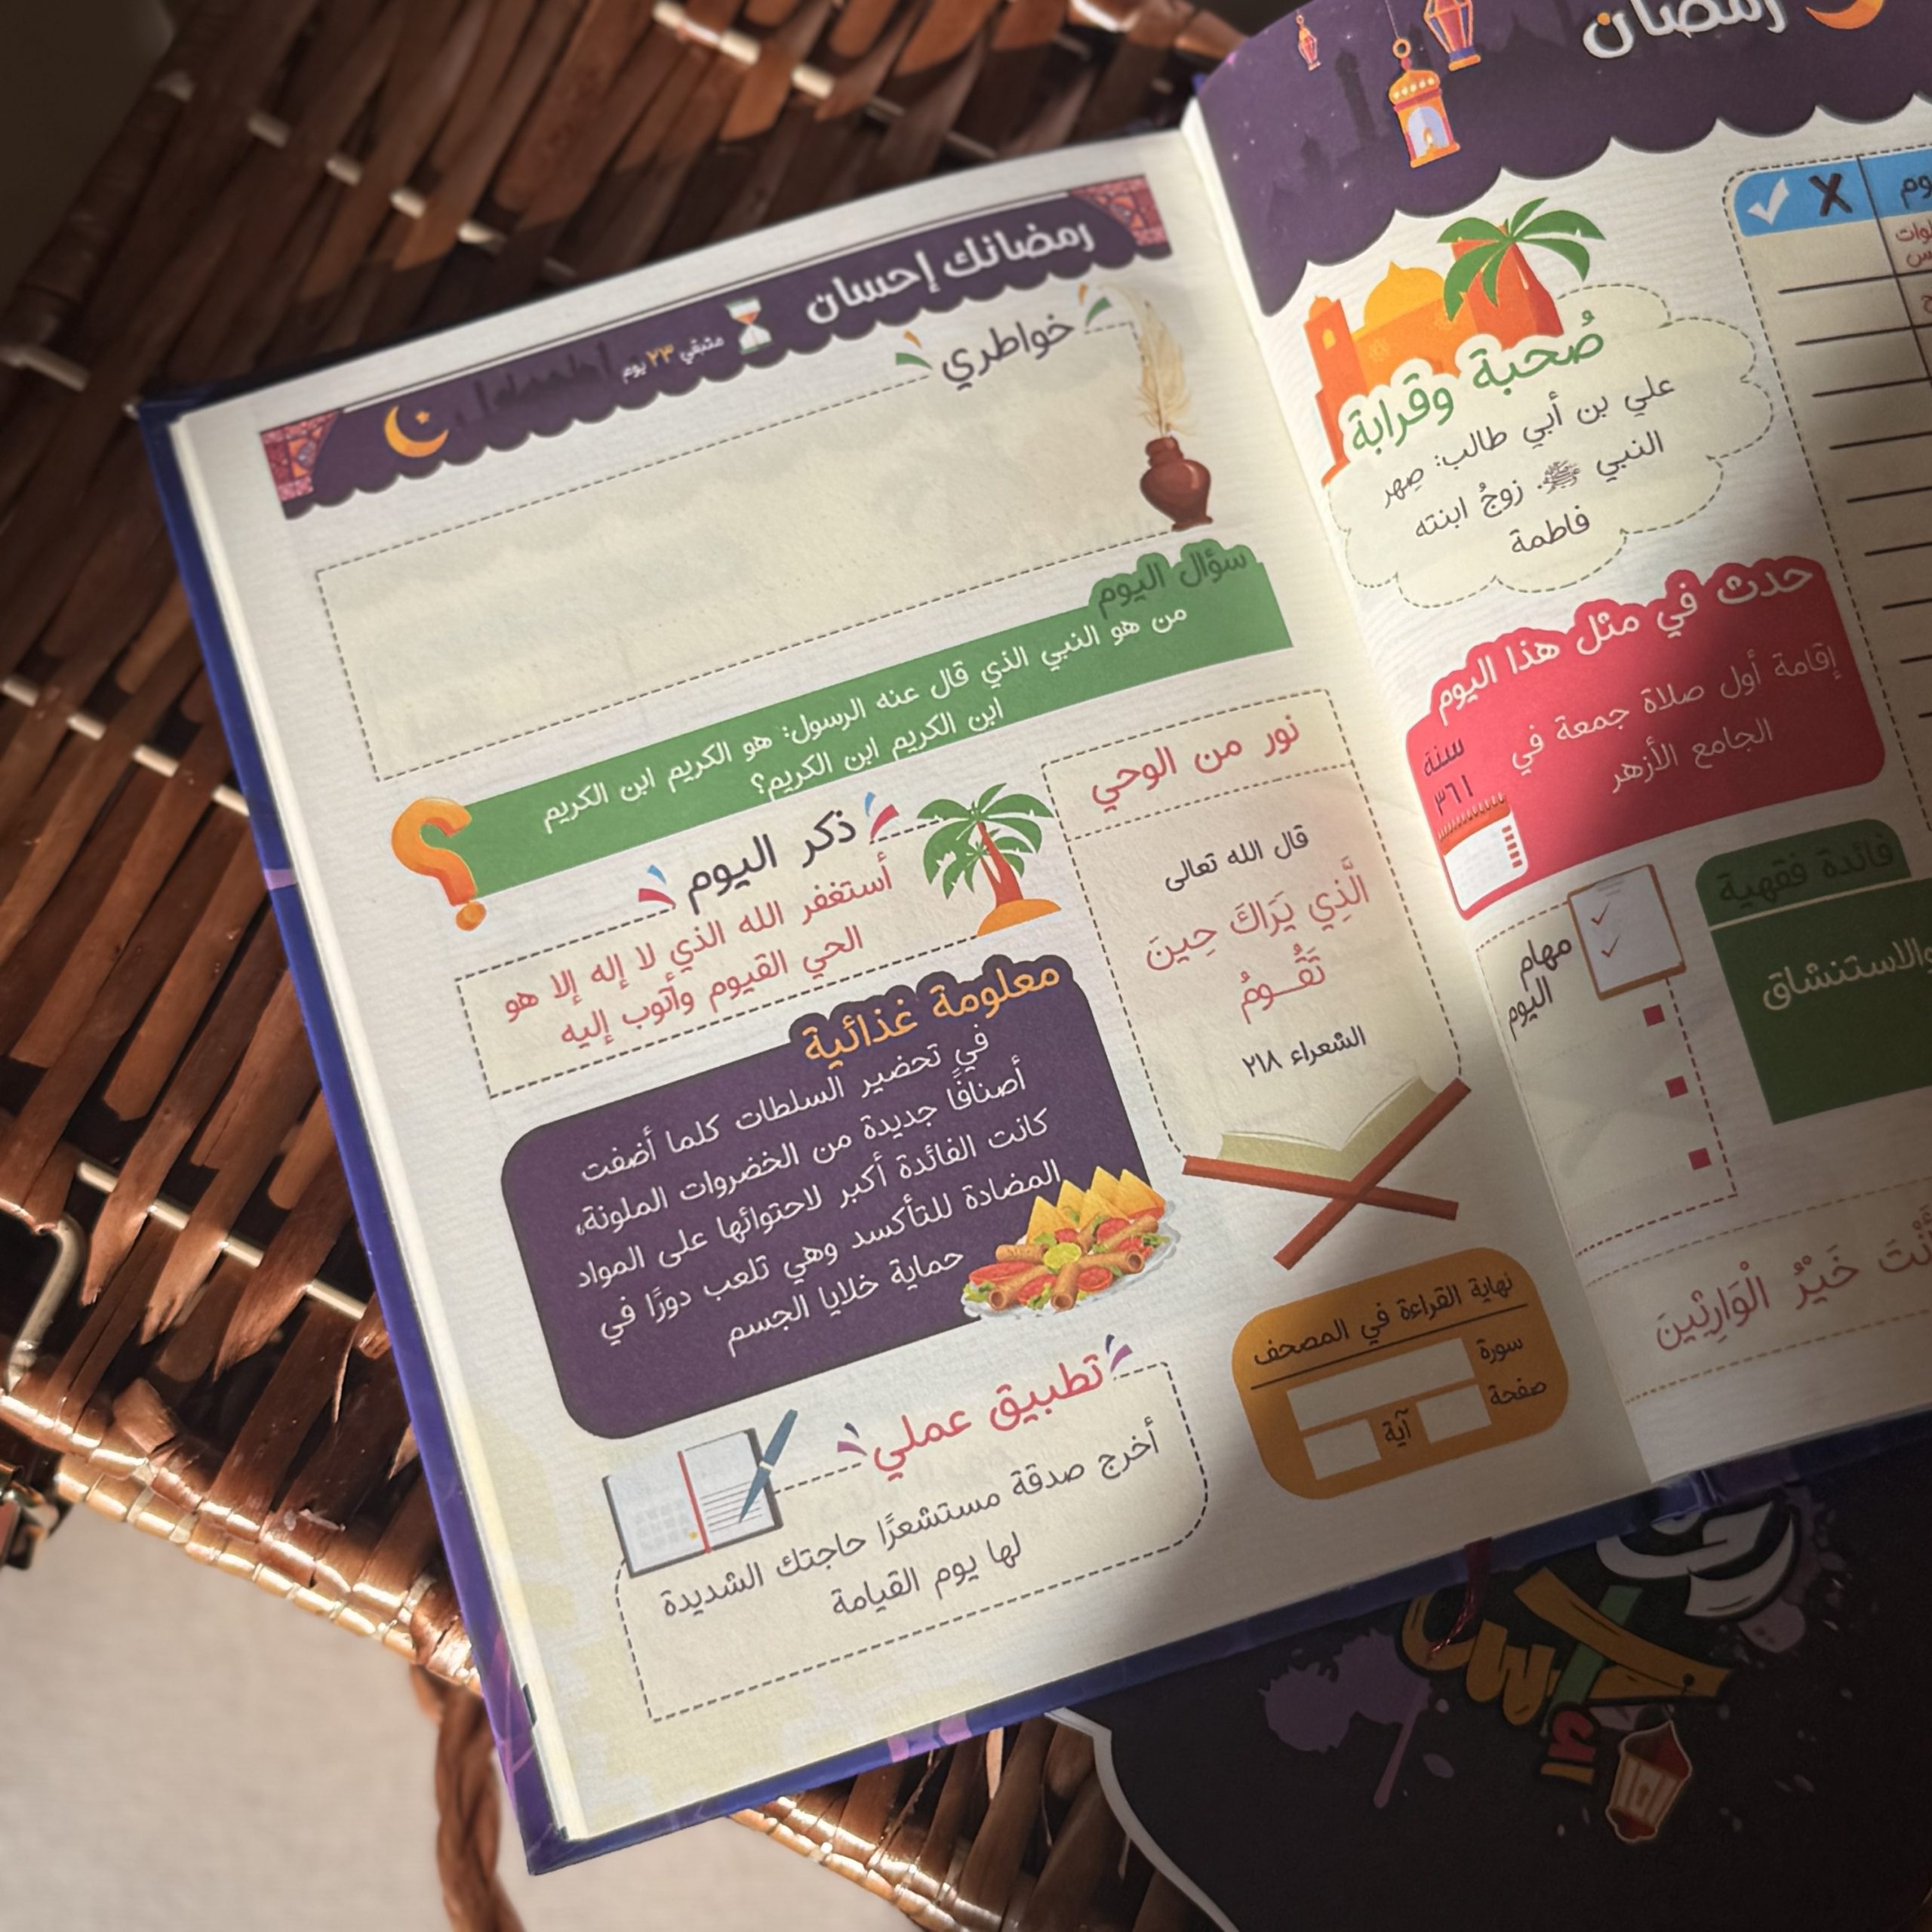 رمضان
صُحبة وقرابة
علي بن أبي طالب: صِهر
النبي ﷺ. زوجُ ابنته
فاطمة
حدث في مثل هذا اليوم
سنة
٣٦١
إقامة أول صلاة جمعة في
الجامع الأزهر
فائدة فقهية
والاستنشاق
مهام
اليوم
خَيْرُ الْوَارِثِينَ
رمضانك إحسان
متبقي ٢٣ يوم
خواطري
سؤال اليوم
من هو النبي الذي قال عنه الرسول: هو الكريم ابن الكريم
ابن الكريم ابن الكريم؟
نور من الوحي
قال الله تعالى
الَّذِي يَرَاكَ حِينَ
تَقُومُ
الشعراء ٢١٨
ذكر اليوم
أستغفر الله الذي لا إله إلا هو
الحي القيوم وأتوب إليه
معلومة غذائية
في تحضير السلطات كلما أضفت
أصنافًا جديدة من الخضروات الملونة،
كانت الفائدة أكبر لاحتوائها على المواد
المضادة للتأكسد وهي تلعب دورًا في
حماية خلايا الجسم
نهاية القراءة في المصحف
سورة
صفحة
آية
تطبيق عملي
أخرج صدقة مستشعرًا حاجتك الشديدة
لها يوم القيامة